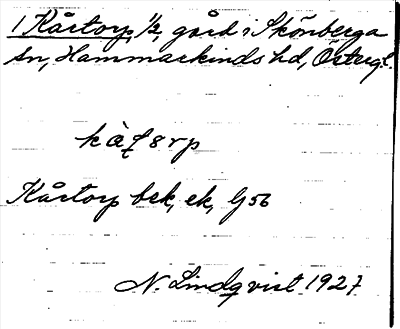 1 Kårtorp, 1/2, gård i Skönberga
sn, Hammarkinds hd, Östergl.
Kårtorp bek, ek, G 56
N. Lindqvist 1927